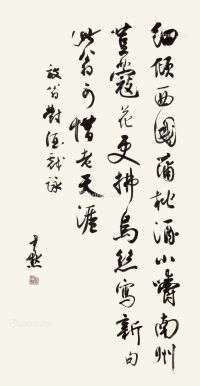 细倾西国蒲桃酒小嚼南州
荳蔻花更拂乌丝写新句
此翁可惜老天涯
放翁对酒戏咏
尹默